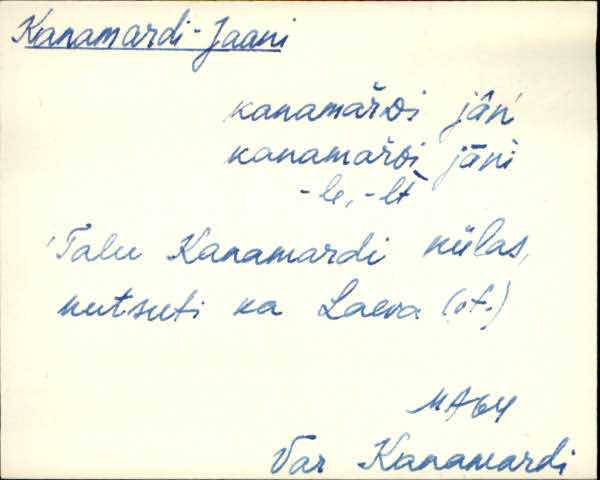 Kanamardi-Jaani
kanamar̆di jân'
kanamar̆di jāni
-le, -lt
Talu Kanamardi külas,
kutsuti ka Laeva (of.)
MA 64
Var Kanamardi